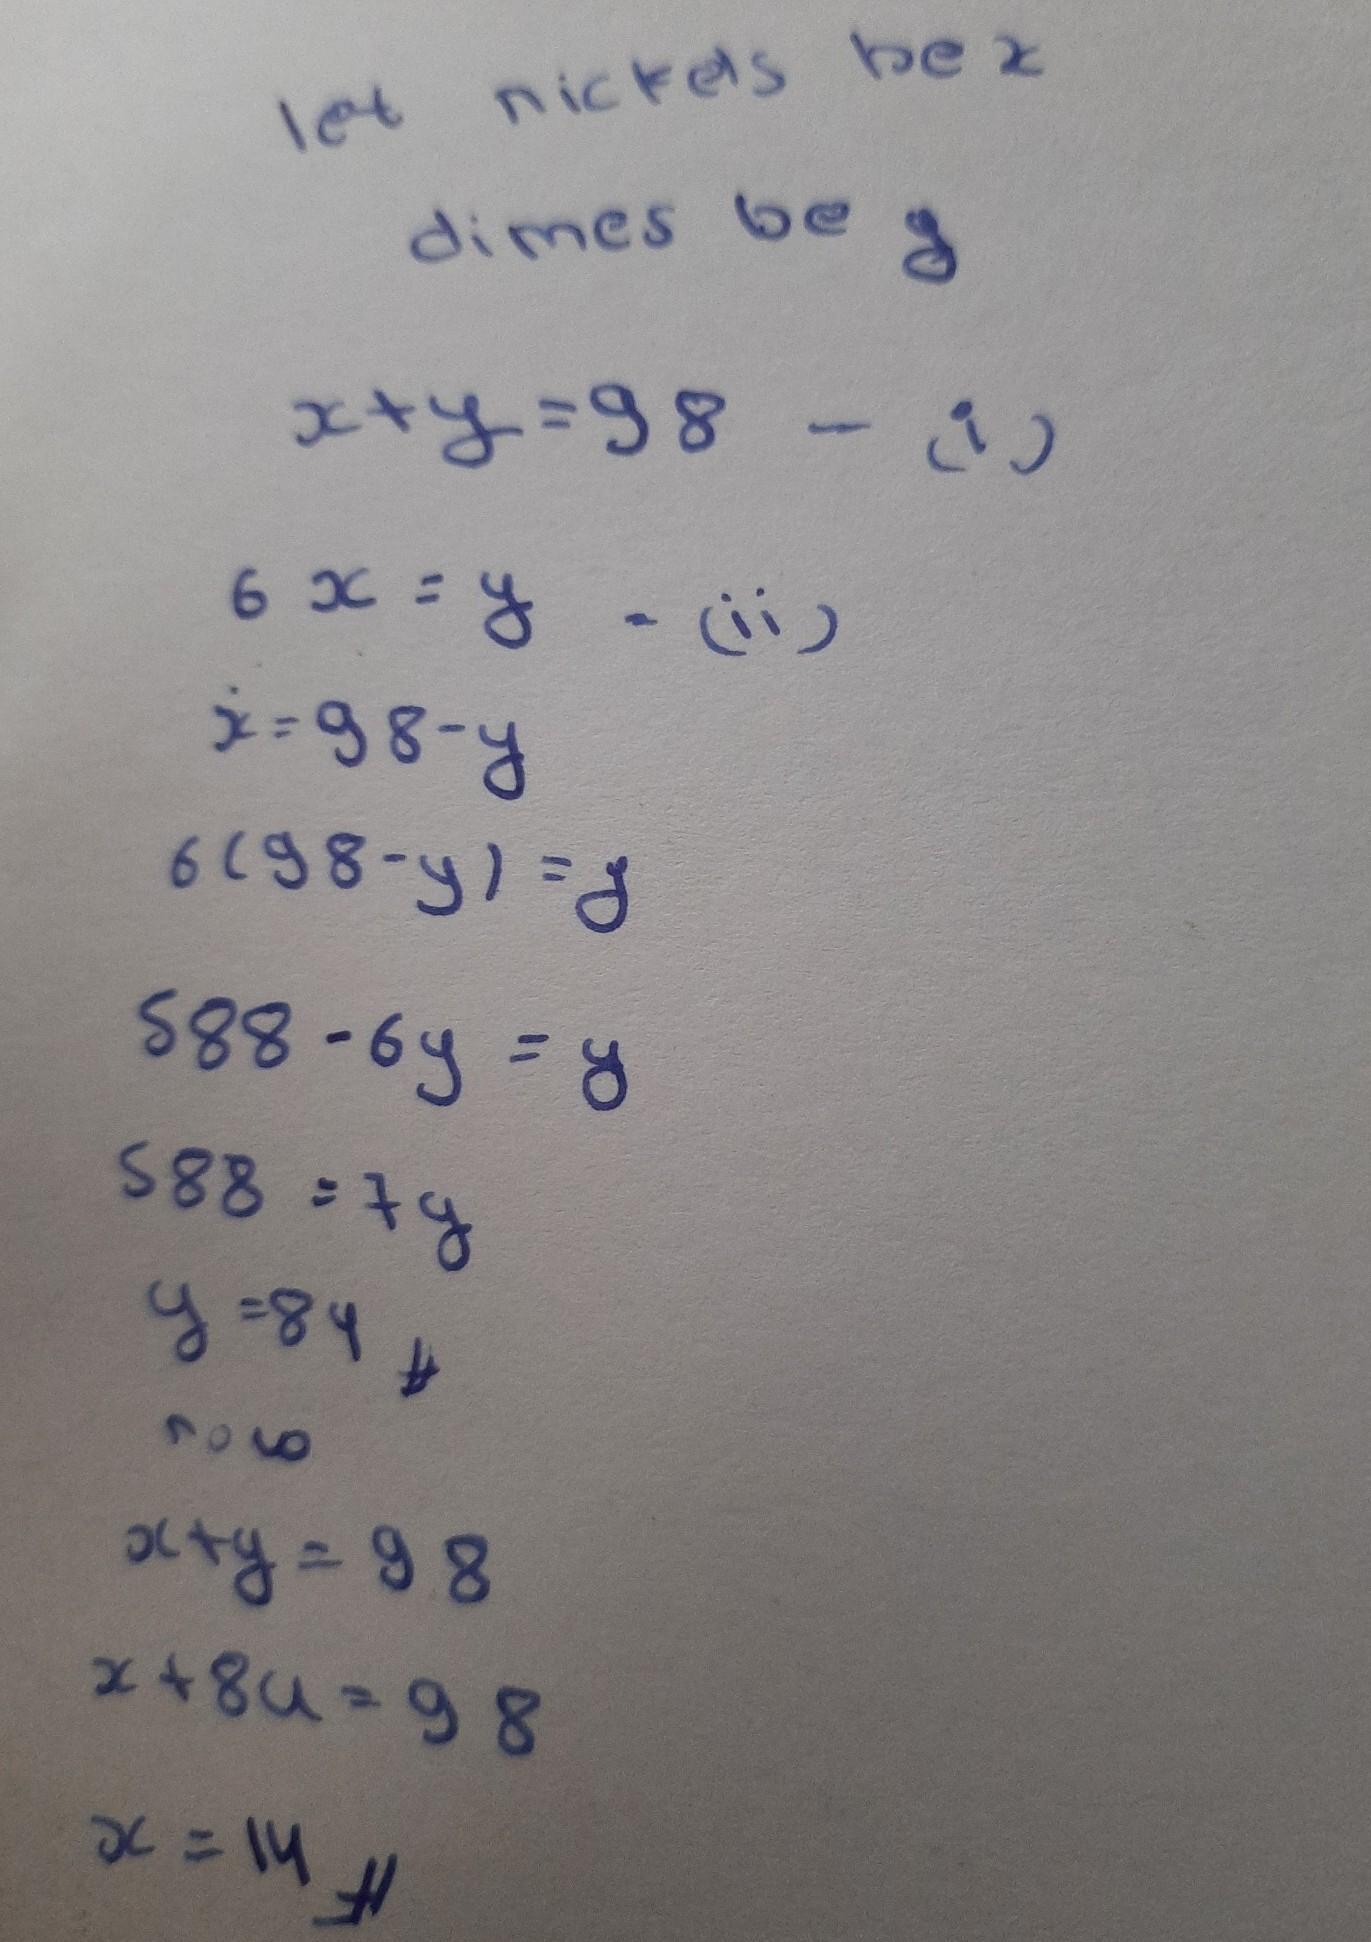 let nickels be x
dimes be y
x+y=98 - (i)
6x = y - (ii)
x=98-y
6(98-y)=y
588-6y=y
588=7y
y=84 #
now
x+y=98
x+84=98
x=14 #